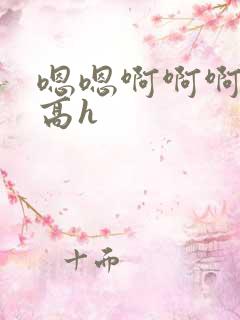 嗯嗯啊啊啊
高h
十而